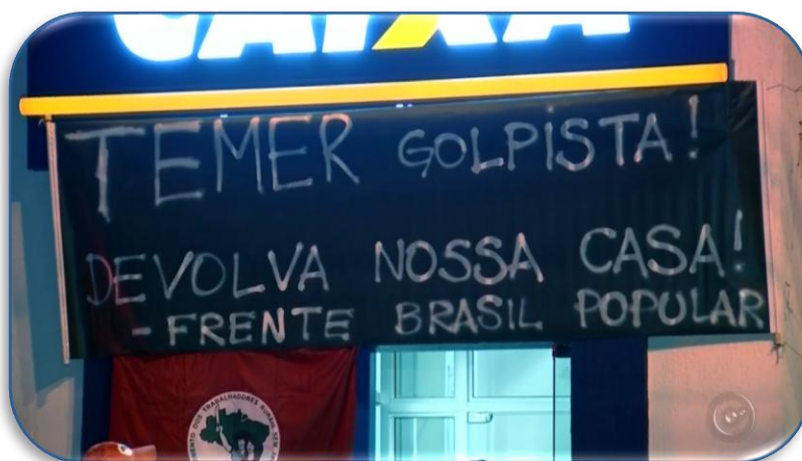 CAIXA
TEMER GOLPISTA!
DEVOLVA NOSSA CASA!
- FRENTE BRASIL POPULAR
DOS TRABALHADORES RURAIS SEM